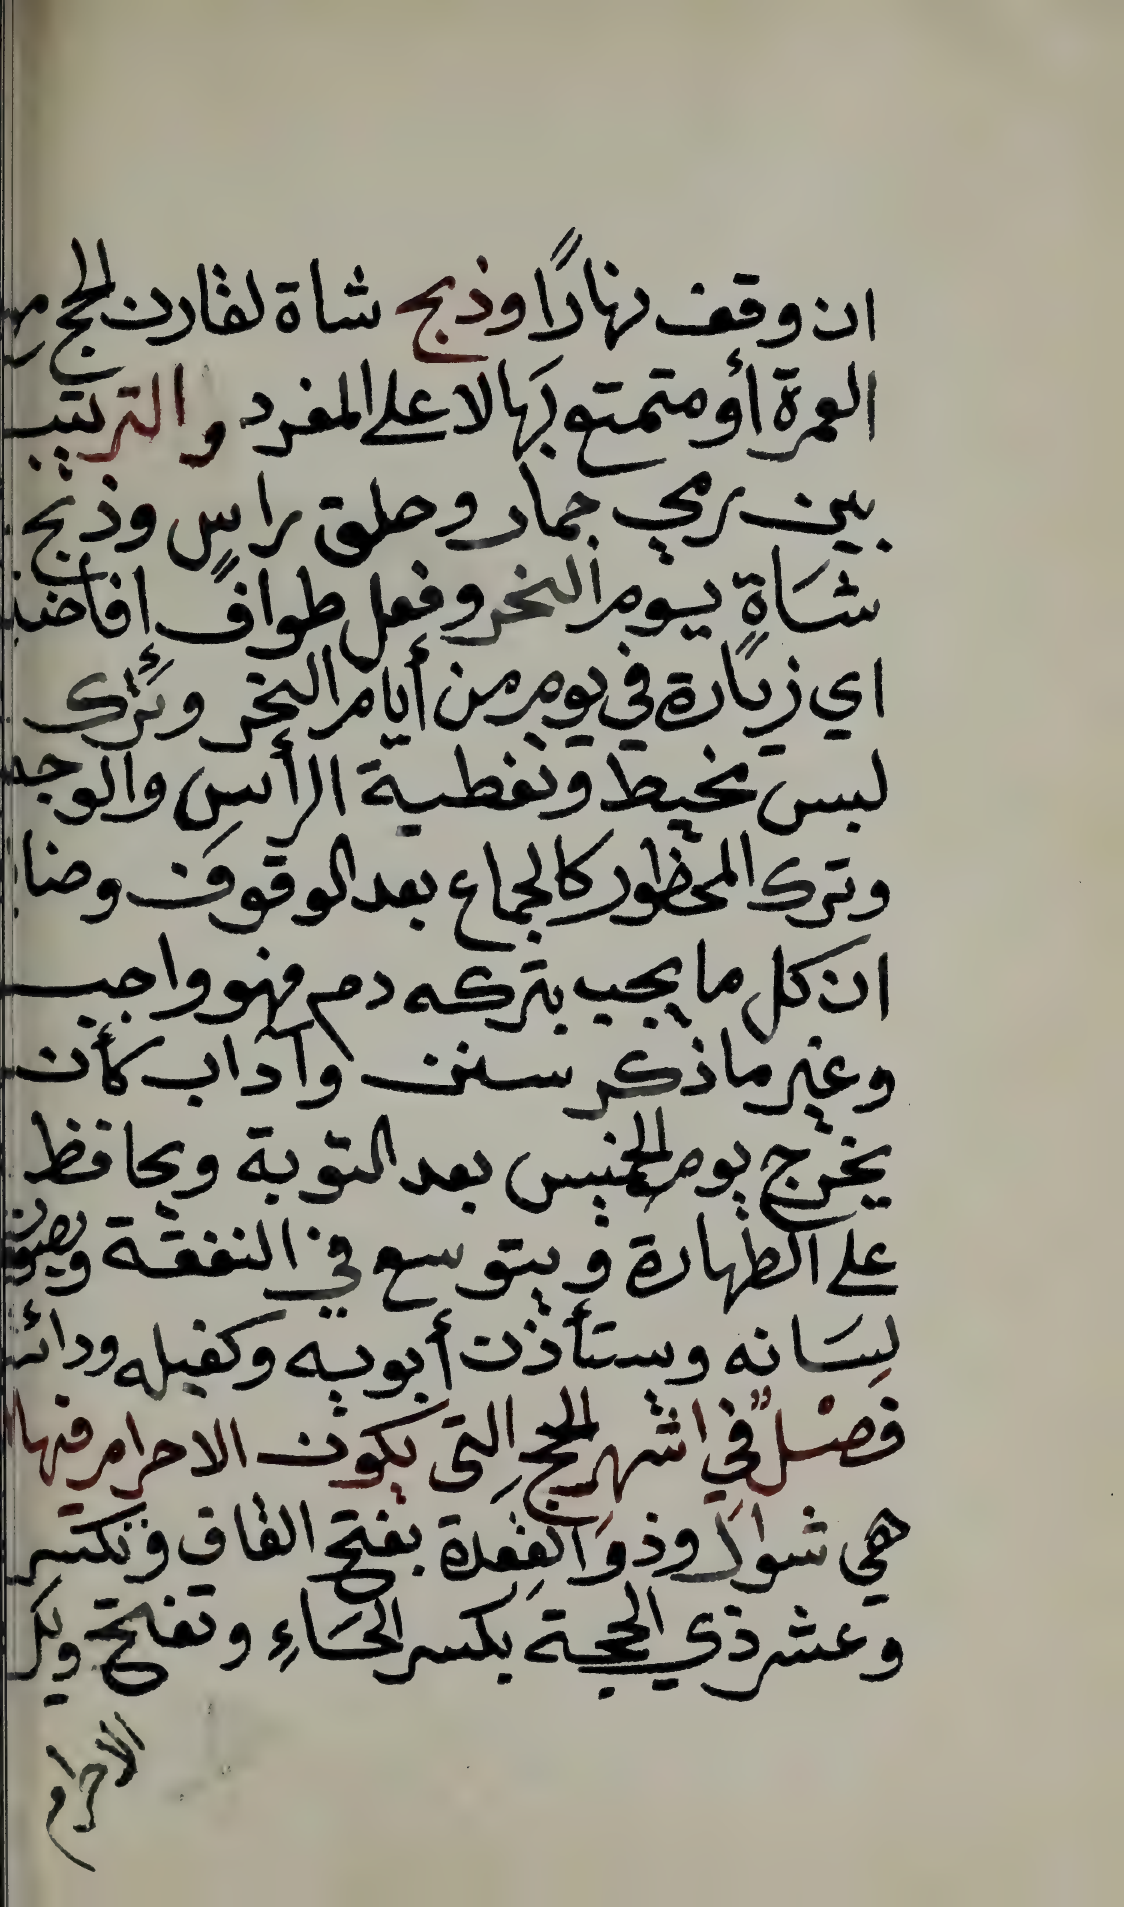 ان وقف نهارًا وذبح شاة لقارن الحج مع
العمرة أو متمتع بَها لا على المفرد والترتيب
بين رمي جمار وحلق راسٍ وذبح
شَاةٍ يوم النحر وفعل طوافٍ افاضة
اي زيَارة في يوم من أيام النحر وتَرْك
لبس مخيط وتغطية الرأس والوجه
وترك المحظور كالجماع بعد الوقوف وضا
ان كل ما يجب بتركه دم فهو واجب
وغير ما ذكر سنن وآداب كأن
يخرج يوم الخميس بعد التوبة ويحافظ
على الطهارة ويتوسع في النفقة ويصون
لِسَانه وستأذن أبويه وكفيله ودائنه
فصْلٌ في اشهر الحج التي يكون الاحرام فيها
هي شوال وذو القعدة بفتح القاف وتكسر
وعشر ذي الحجة بكسر الحَاءِ وتفتح ويكره
الاحرام